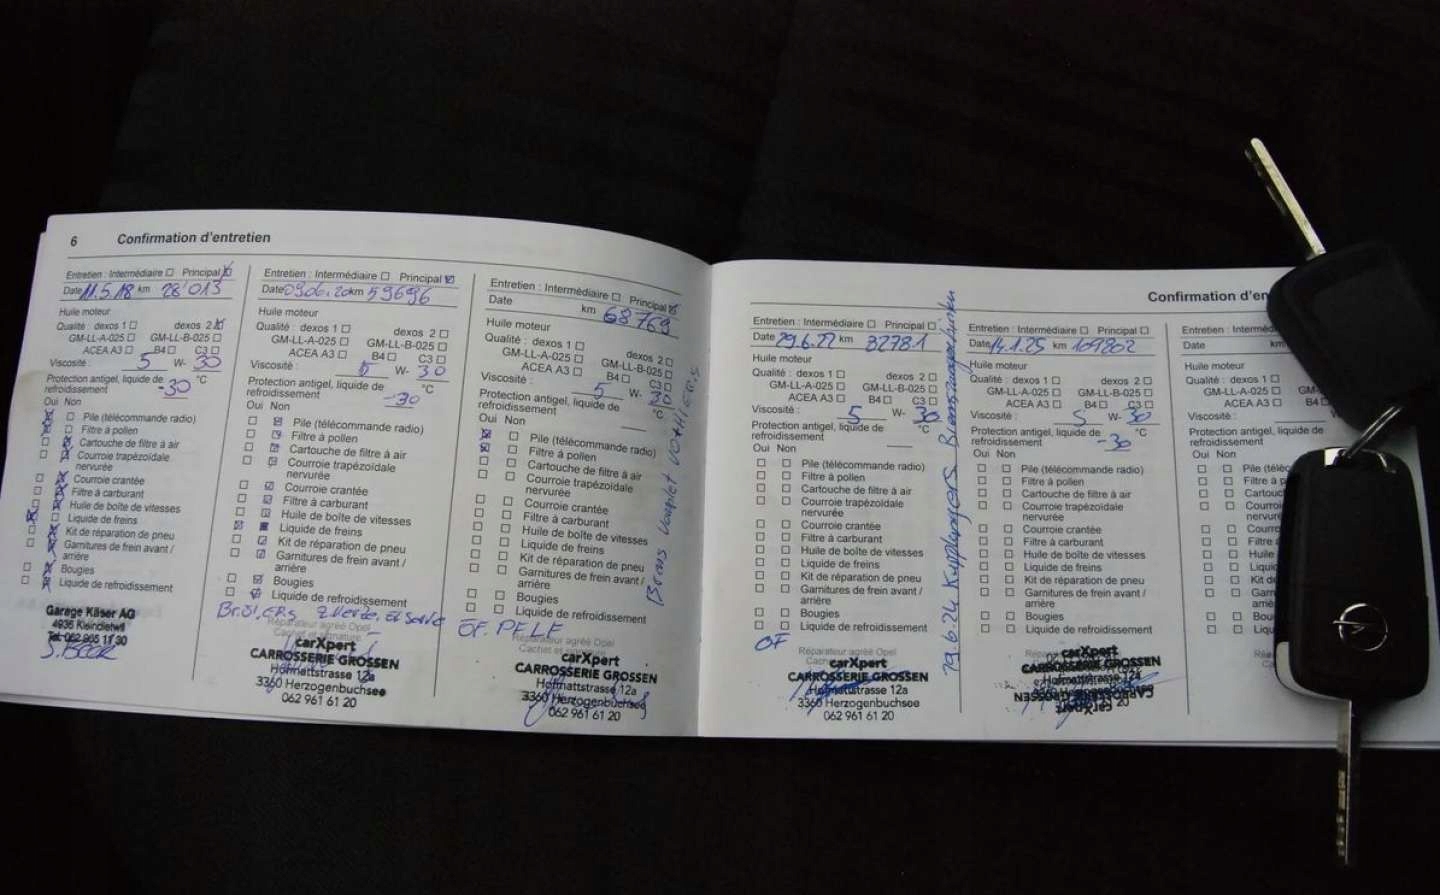 6 Confirmation d'entretien
Entretien : Intermédiaire ☐ Principal ☒
Date 11.5.18 km 28'013
Huile moteur
Qualité : dexos 1 ☐ dexos 2 ☒
GM-LL-A-025 ☐ GM-LL-B-025 ☐
ACEA A3 ☐ B4 ☐ C3 ☐
Viscosité : 5 W- 30
Protection antigel, liquide de
refroidissement -30 °C
Oui Non
Pile (télécommande radio)
Filtre à pollen
Cartouche de filtre à air
Courroie trapézoïdale
nervurée
Courroie crantée
Filtre à carburant
Huile de boîte de vitesses
Liquide de freins
Kit de réparation de pneu
Garnitures de frein avant /
arrière
Bougies
Liquide de refroidissement
Garage Käser AG
4936 Kleindietwil
Tel. 062 965 11 30
Entretien : Intermédiaire ☐ Principal ☒
Date 09.06.20 km 59696
Huile moteur
Qualité : dexos 1 ☐ dexos 2 ☐
GM-LL-A-025 ☐ GM-LL-B-025 ☐
ACEA A3 ☐ B4 ☐ C3 ☐
Viscosité : 5 W- 30
Protection antigel, liquide de
refroidissement -30 °C
Oui Non
Pile (télécommande radio)
Filtre à pollen
Cartouche de filtre à air
Courroie trapézoïdale
nervurée
Courroie crantée
Filtre à carburant
Huile de boîte de vitesses
Liquide de freins
Kit de réparation de pneu
Garnitures de frein avant /
arrière
Bougies
Liquide de refroidissement
Réparateur agréé Opel
Cachet et signature
carXpert
CARROSSERIE GROSSEN
Hofmattstrasse 12a
3360 Herzogenbuchsee
062 961 61 20
Entretien : Intermédiaire ☐ Principal ☒
Date km 68769
Huile moteur
Qualité : dexos 1 ☐ dexos 2 ☐
GM-LL-A-025 ☐ GM-LL-B-025 ☐
ACEA A3 ☐ B4 ☐ C3 ☐
Viscosité : 5 W- 30
Protection antigel, liquide de
refroidissement °C
Oui Non
Pile (télécommande radio)
Filtre à pollen
Cartouche de filtre à air
Courroie trapézoïdale
nervurée
Courroie crantée
Filtre à carburant
Huile de boîte de vitesses
Liquide de freins
Kit de réparation de pneu
Garnitures de frein avant /
arrière
Bougies
Liquide de refroidissement
OF. PELF
Réparateur agréé Opel
Cachet et signature
carXpert
CARROSSERIE GROSSEN
Hofmattstrasse 12a
3360 Herzogenbuchsee
062 961 61 20
Confirmation d'e
Entretien : Intermédiaire ☐ Principal ☐
Date 29.6.22 km 83278.1
Huile moteur
Qualité : dexos 1 ☐ dexos 2 ☐
GM-LL-A-025 ☐ GM-LL-B-025 ☐
ACEA A3 ☐ B4 ☐ C3 ☐
Viscosité : 5 W- 30
Protection antigel, liquide de
refroidissement °C
Oui Non
Pile (télécommande radio)
Filtre à pollen
Cartouche de filtre à air
Courroie trapézoïdale
nervurée
Courroie crantée
Filtre à carburant
Huile de boîte de vitesses
Liquide de freins
Kit de réparation de pneu
Garnitures de frein avant /
arrière
Bougies
Liquide de refroidissement
OF
Réparateur agréé Opel
carXpert
CARROSSERIE GROSSEN
Hofmattstrasse 12a
3360 Herzogenbuchsee
062 961 61 20
19.6.24
Entretien : Intermédiaire ☐ Principal ☐
Date 14.1.25 km 109802
Huile moteur
Qualité : dexos 1 ☐ dexos 2 ☐
GM-LL-A-025 ☐ GM-LL-B-025 ☐
ACEA A3 ☐ B4 ☐ C3 ☐
Viscosité : 5 W- 30
Protection antigel, liquide de
refroidissement -30 °C
Oui Non
Pile (télécommande radio)
Filtre à pollen
Cartouche de filtre à air
Courroie trapézoïdale
nervurée
Courroie crantée
Filtre à carburant
Huile de boîte de vitesses
Liquide de freins
Kit de réparation de pneu
Garnitures de frein avant /
arrière
Bougies
Liquide de refroidissement
carXpert
CARROSSERIE GROSSEN
Entretien : Interméd
Date km
Huile moteur
Qualité : dexos 1 ☐
GM-LL-A-025 ☐ GM-
ACEA A3 ☐
Viscosité :
Protection antigel, liquid
refroidissement
Oui Non
Pile (téléc
Filtre à p
Cartouc
Courroi
nervur
Courro
Filtre
Huile
Liqui
Kit d
Garn
arriè
Bou
Liqu